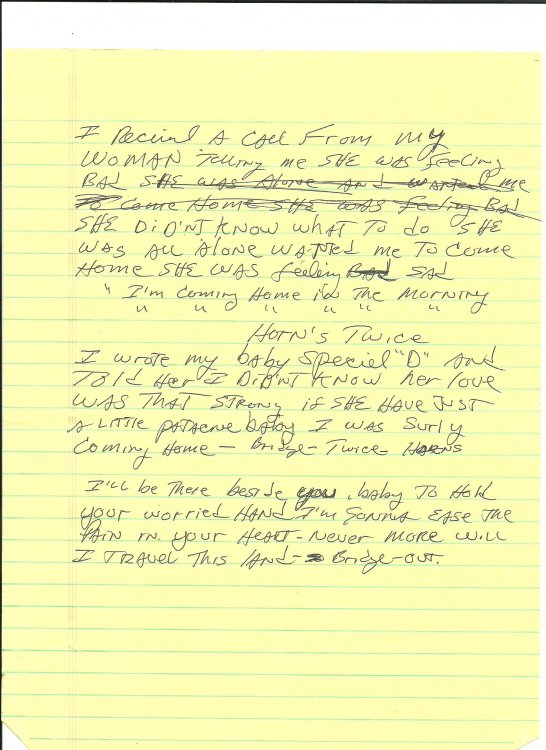 I Recived A CAll From my
WOMAN Telling me SHE WAS feeling
BAd SHE WAS Alone And WANted me
To Come Home SHE WAS feeling BAd
SHE DiDiNT KNOW WHAT To do SHE
WAS All Alone WANTed me To Come
Home SHE WAS feeling BAd SAd
" I'm Coming Home in The Morning
" " " " " "
HORN'S Twice
I wrote my baby Speciel "D" And
Told Her I DiDiNT KNOW her love
WAS THAT STRONG if SHE HAVE JUST
A little PATAENE baby I WAS Surly
Coming Home - Bridge - Twice - HORNS
I'll be There beside you, baby To Hold
your worried HANd I'm GONNA EASE The
PAIN in your HEART - Never More will
I TRAVEL THIS lANd - Bridge-out.